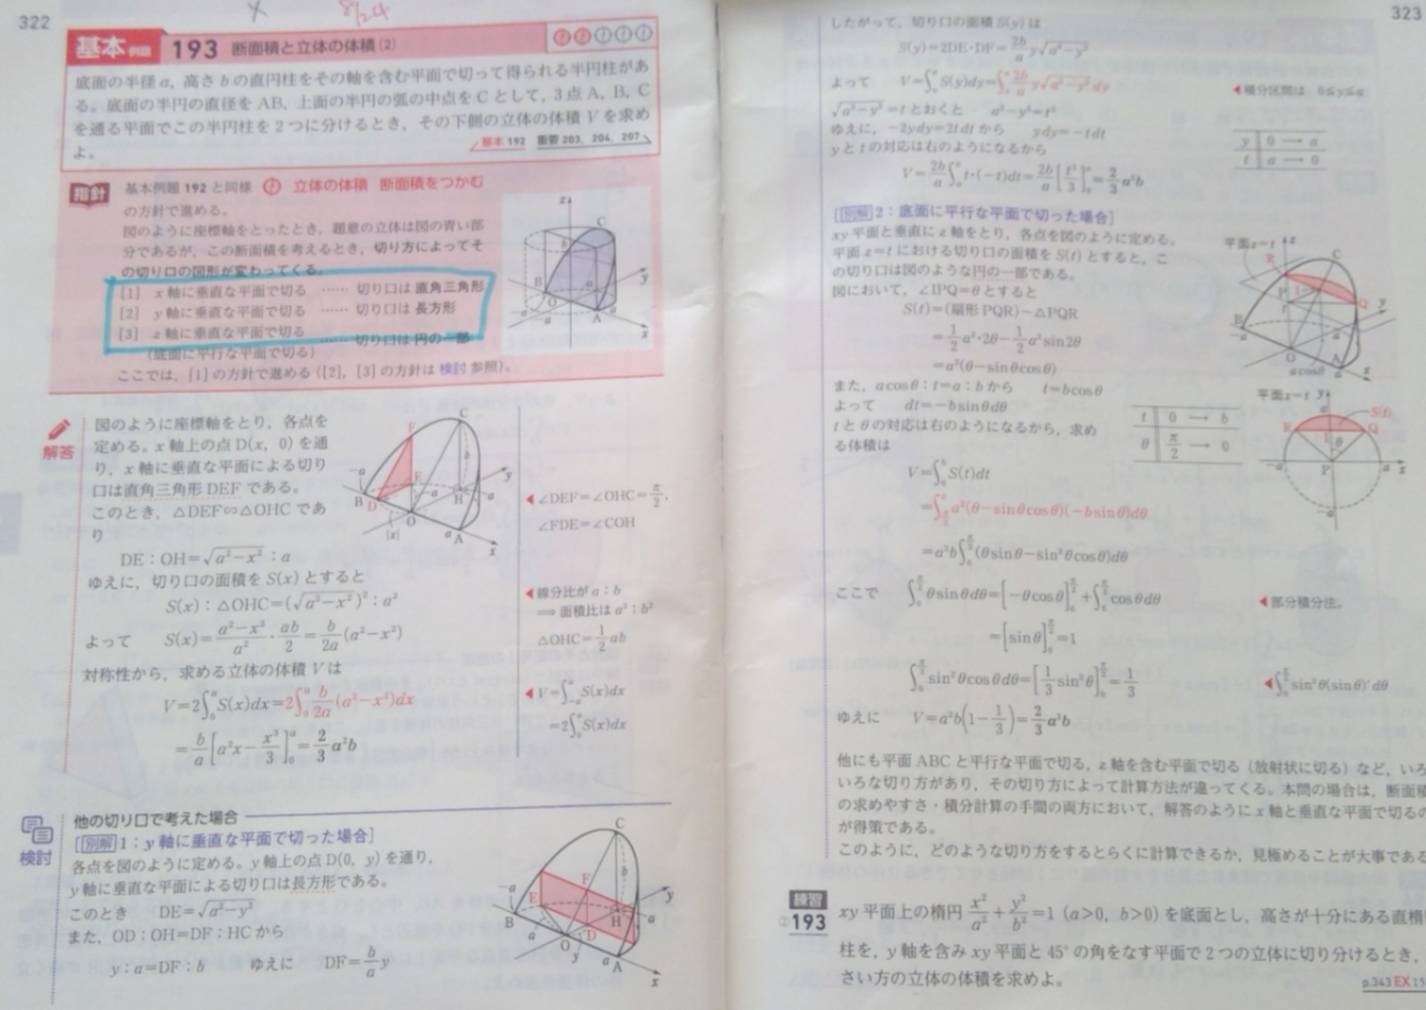 322
8/24
基本 例題 193 断面積と立体の体積(2)
底面の半径 a, 高さ b の直円柱をその軸を含む平面で切って得られる半円柱があ
る。底面の半円の直径を AB, 上面の半円の弧の中点を C として, 3点 A, B, C
を通る平面でこの半円柱を2つに分けるとき, その下側の立体の体積 V を求め
よ。
基本 192 重要 203, 204, 207
指針
基本例題 192 と同様 立体の体積 断面積をつかむ
の方針で進める。
図のように座標軸をとったとき, 題意の立体は図の青い部
分であるが, この断面積を考えるとき, 切り方によってそ
の切り口の図形が変わってくる。
[1] x 軸に垂直な平面で切る …… 切り口は 直角三角形
[2] y 軸に垂直な平面で切る …… 切り口は 長方形
[3] z 軸に垂直な平面で切る …… 切り口は 円の一部
(底面に平行な平面で切る)
ここでは, [1] の方針で進める ([2], [3] の方針は 検討 参照)。
解答
図のように座標軸をとり, 各点を
定める。x 軸上の点 D(x, 0) を通
り, x 軸に垂直な平面による切り
口は直角三角形 DEF である。
このとき, △DEF∽△OHC であ
り
DE : OH=√(a²−x²) : a
ゆえに, 切り口の面積を S(x) とすると
S(x) : △OHC=(√(a²−x²))² : a²
よって S(x)=(a²−x²)/a²・ab/2=b/2a(a²−x²)
対称性から, 求める立体の体積 V は
V=2∫₀ᵃS(x)dx=2∫₀ᵃ b/2a(a²−x²)dx
=b/a[a²x−x³/3]₀ᵃ=2/3 a²b
◀∠DEF=∠OHC=π/2,
∠FDE=∠COH
◀線分比が a : b
⟹ 面積比は a² : b²
△OHC=1/2 ab
◀V=∫₋ₐᵃ S(x)dx
=2∫₀ᵃS(x)dx
検討
他の切り口で考えた場合
[別解1 : y 軸に垂直な平面で切った場合]
各点を図のように定める。y 軸上の点 D(0, y) を通り,
y 軸に垂直な平面による切り口は長方形である。
このとき DE=√(a²−y²)
また, OD : OH=DF : HC から
y : a=DF : b ゆえに DF=b/a y
323
したがって, 切り口の面積 S(y) は
S(y)=2DE・DF=2b/a y√(a²−y²)
よって V=∫₀ᵃS(y)dy=∫₀ᵃ 2b/a y√(a²−y²)dy
◀積分区間は 0≦y≦a
√(a²−y²)=t とおくと a²−y²=t²
ゆえに, −2ydy=2tdt から ydy=−tdt
y と t の対応は右のようになるから
y 0 → a
t a → 0
V=2b/a∫ₐ⁰t・(−t)dt=2b/a[t³/3]₀ᵃ=2/3 a²b
[別解2 : 底面に平行な平面で切った場合]
xy 平面と垂直に z 軸をとり, 各点を図のように定める。
平面 z=t における切り口の面積を S(t) とすると, こ
の切り口は図のような円の一部である。
図において, ∠IPQ=θ とすると
S(t)=(扇形 PQR)−△PQR
=1/2 a²・2θ−1/2 a² sin2θ
=a²(θ−sinθcosθ)
また, acosθ : t=a : b から t=bcosθ
よって dt=−bsinθdθ
t と θ の対応は右のようになるから, 求め
る体積は
t 0 → b
θ π/2 → 0
V=∫₀ᵇS(t)dt
=∫a²(θ−sinθcosθ)(−bsinθ)dθ
=a²b∫(θsinθ−sin²θcosθ)dθ
ここで ∫θsinθdθ=[−θcosθ]+∫cosθdθ
◀部分積分法。
=[sinθ]=1
∫sin²θcosθdθ=[1/3 sin³θ]=1/3
◀∫sin²θ(sinθ)'dθ
ゆえに V=a²b(1−1/3)=2/3 a²b
他にも平面 ABC と平行な平面で切る, z 軸を含む平面で切る (放射状に切る) など, いろ
いろな切り方があり, その切り方によって計算方法が違ってくる。本問の場合は, 断面積
の求めやすさ・積分計算の手間の両方において, 解答のように x 軸と垂直な平面で切るの
が得策である。
このように, どのような切り方をするとらくに計算できるか, 見極めることが大事である
練習 193 xy 平面上の楕円 x²/a²+y²/b²=1 (a>0, b>0) を底面とし, 高さが十分にある直楕
柱を, y 軸を含み xy 平面と 45° の角をなす平面で2つの立体に切り分けるとき,
さい方の立体の体積を求めよ。
p.343 EX 15